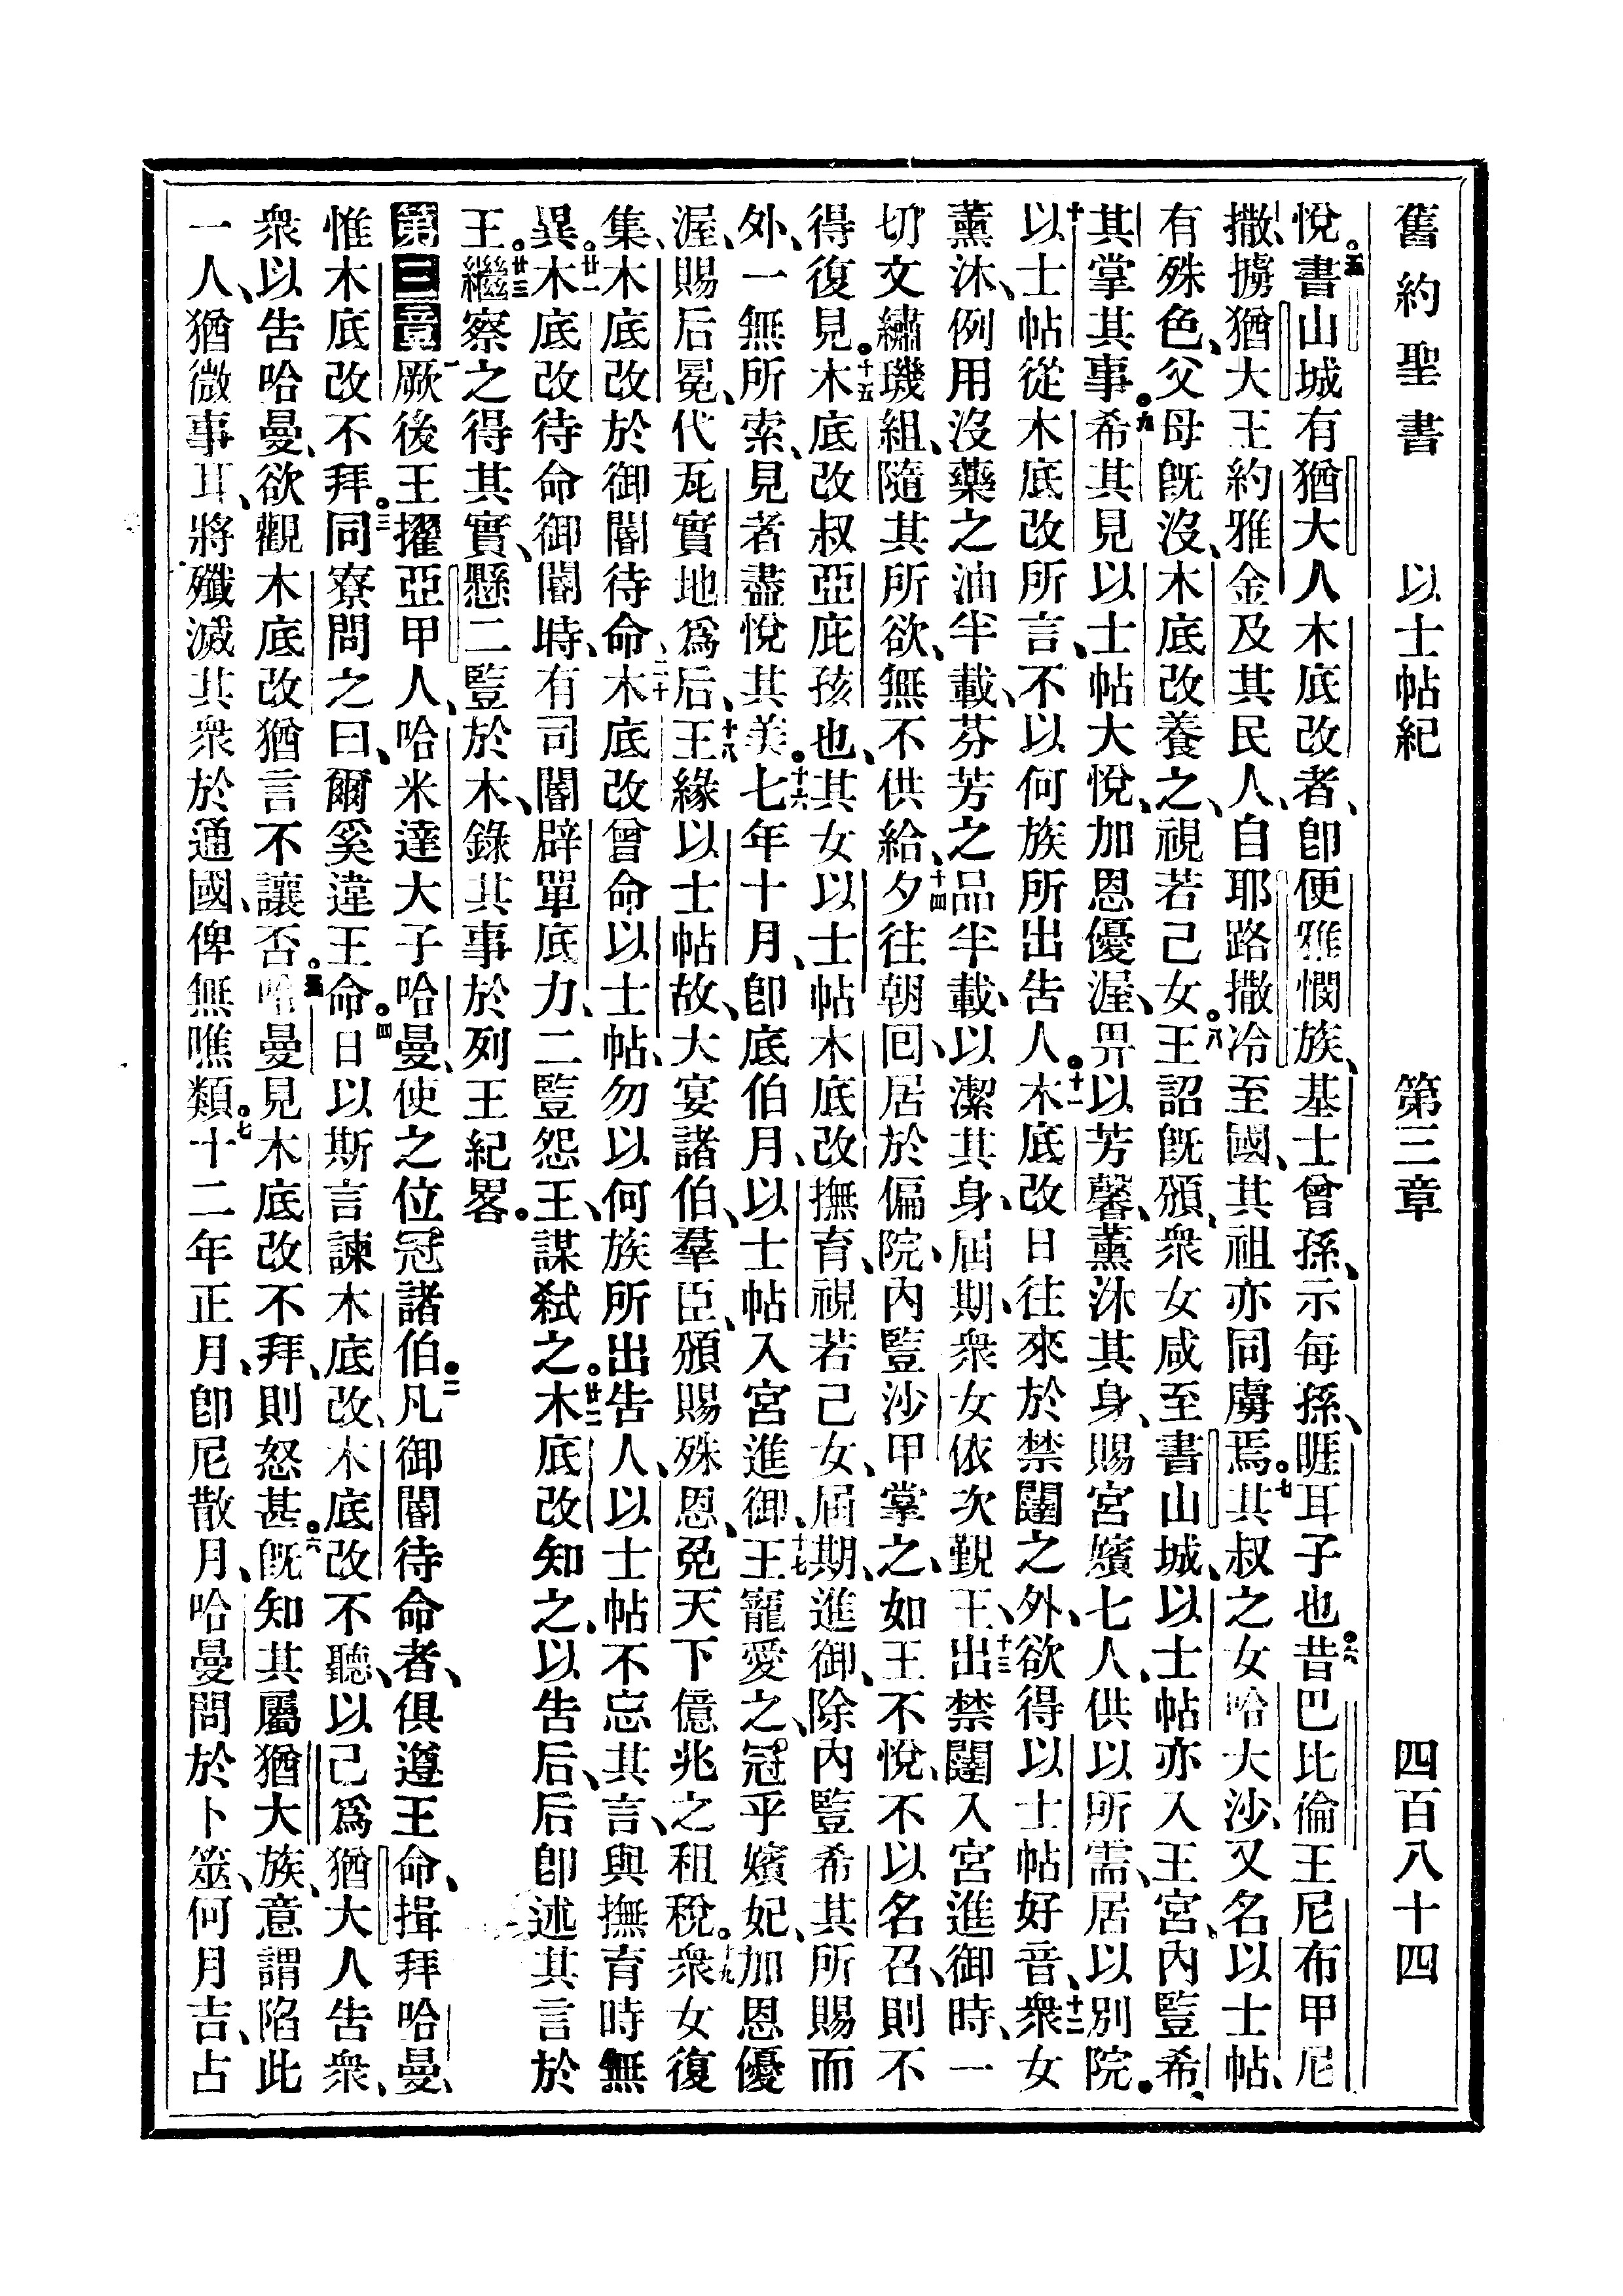 舊約聖書 以士帖紀 第三章 四百八十四
悅。五書山城有猶大人木底改者、卽便雅憫族、基士曾孫、示每孫、睚耳子也。六昔巴比倫王尼布甲尼
撒、擄猶大王約雅金及其民人、自耶路撒冷至國、其祖亦同虜焉。七其叔之女哈大沙、又名以士帖、
有殊色、父母旣沒、木底改養之、視若己女。八王詔旣頒、衆女咸至書山城、以士帖亦入王宮、內監希
其掌其事。九希其見以士帖大悅、加恩優渥、畀以芳馨、薰沐其身、賜宮嬪七人、供以所需、居以別院。
十以士帖從木底改所言、不以何族所出告人。十一木底改日往來於禁闥之外、欲得以士帖好音、十二衆女
薰沐、例用沒藥之油半載、芬芳之品半載、以潔其身、屆期、衆女依次覲王、十三出禁闥入宮進御時、一
切文繡璣組、隨其所欲、無不供給、十四夕往朝回、居於偏院、內監沙甲掌之、如王不悅、不以名召、則不
得復見。十五木底改叔亞庇孩也、其女以士帖木底改撫育、視若己女、屆期、進御、除內監希其所賜而
外、一無所索、見者盡悅其美。十六七年十月、卽底伯月、以士帖入宮進御、十七王寵愛之、冠乎嬪妃、加恩優
渥、賜后冕、代瓦實地爲后、十八王緣以士帖故、大宴諸伯、羣臣、頒賜殊恩、免天下億兆之租稅。十九衆女復
集、木底改於御閽待命、二十木底改曾命以士帖、勿以何族所出告人、以士帖不忘其言、與撫育時無
異。廿一木底改待命御閽時、有司閽辟單底力、二監怨王、謀弒之。廿二木底改知之、以告后、后卽述其言於
王。廿三繼察之得其實、懸二監於木、錄其事於列王紀畧。
第三章一厥後王擢亞甲人、哈米達大子哈曼、使之位冠諸伯。二凡御閽待命者、俱遵王命、揖拜哈曼、
惟木底改不拜。三同寮問之曰、爾奚違王命。四日以斯言諫木底改、木底改不聽、以己爲猶大人告衆、
衆以告哈曼、欲觀木底改猶言不讓否。五哈曼見木底改不拜、則怒甚。六旣知其屬猶大族、意謂陷此
一人、猶微事耳、將殲滅其衆於通國、俾無噍類。七十二年正月、卽尼散月、哈曼問於卜筮、何月吉、占